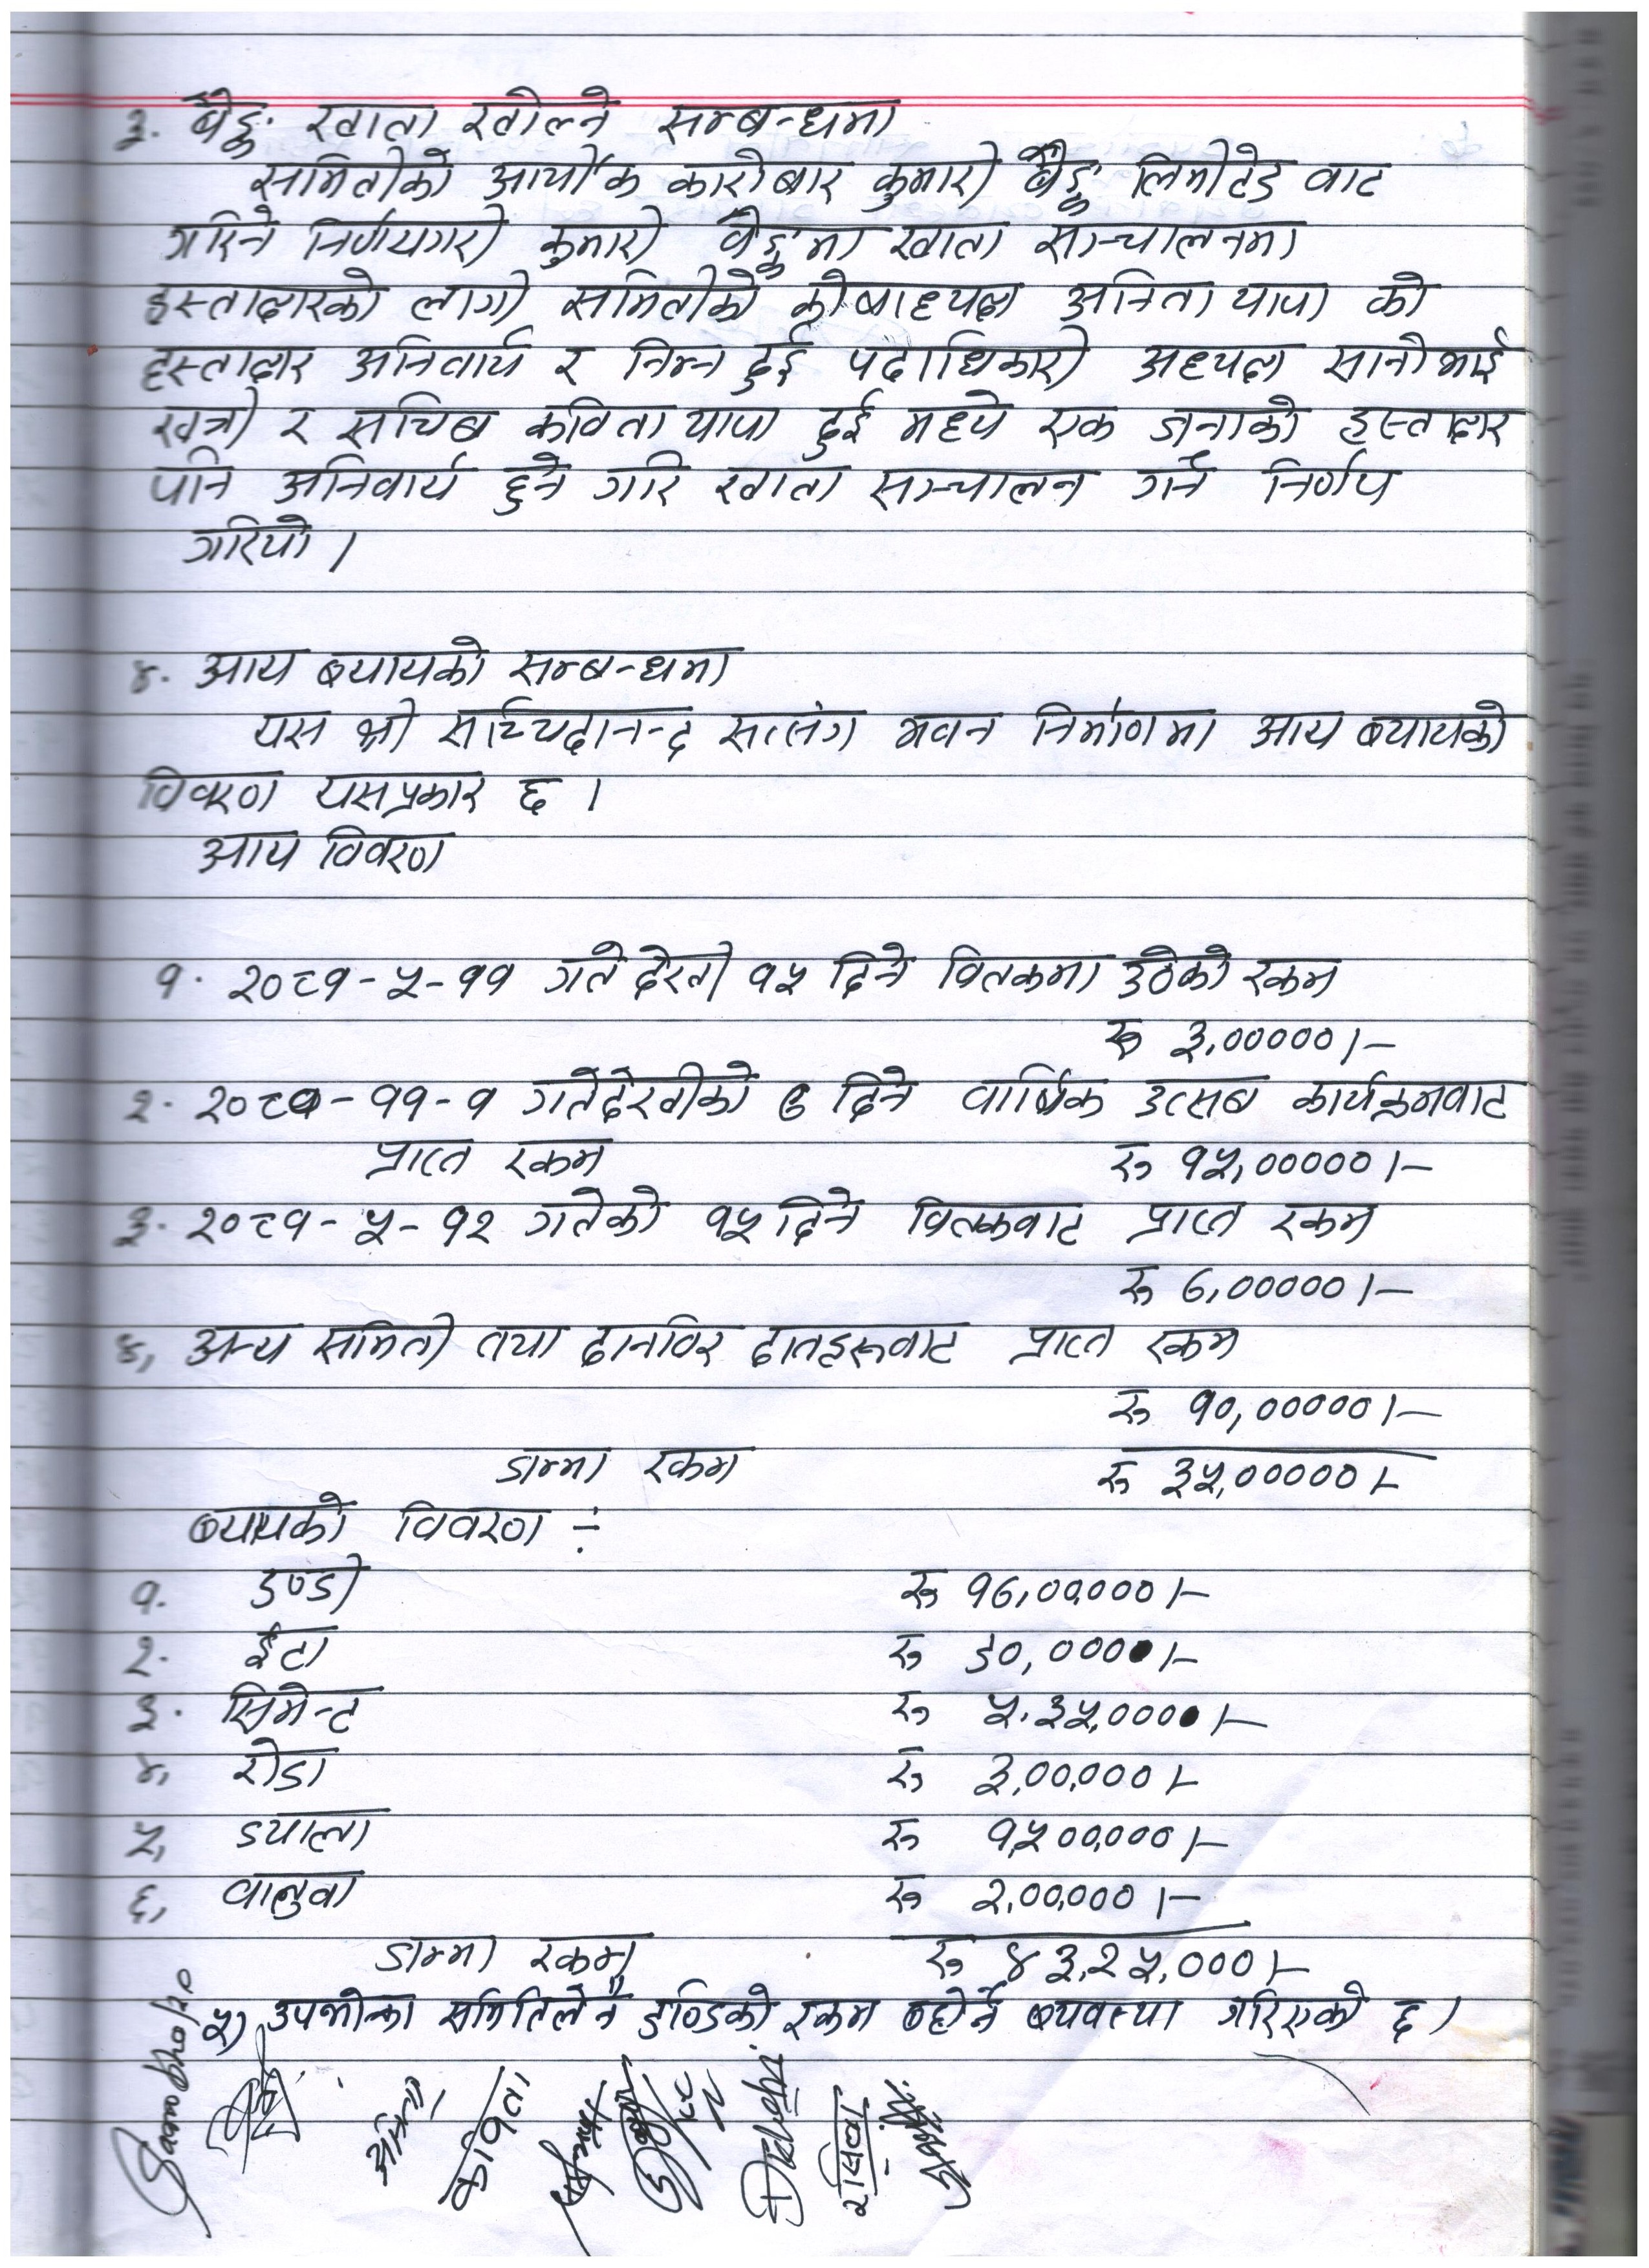 ३. बैङ्क खाता खोल्ने सम्बन्धमा
समितीको आर्थीक कारोबार कुमारी बैङ्क लिमीटेड वाट
गरिने निर्णयगरी कुमारी वैङ्कमा खाता सञ्चालनमा
हस्ताक्षरको लागी समितीको कोषाध्यक्ष अनिता थापा को
हस्ताक्षर अनिवार्य र निम्न दुई पदाधिकारी अध्यक्ष सानीभाई
खत्री र सचिब कविता थापा दुई मध्ये एक जनाको हस्ताक्षर
पनि अनिवार्य हुने गरि खाता सञ्चालन गर्ने निर्णय
गरियो ।
४. आय ब्यायको सम्बन्धमा
यस श्री सच्चिदानन्द सत्संग भवन निर्माणमा आय ब्यायको
विवरण यसप्रकार छ ।
आय विवरण
१. २०८१-५-११ गते देखी १५ दिने वितकमा उठेको रकम
रु ३,०००००।-
२. २०८१-११-१ गतेदेखीको ७ दिने वार्षिक उत्सब कार्यक्रमवाट
प्राप्त रकम रु १५,०००००।-
३. २०८१-५-१२ गतेको १५ दिने वितकवाट प्राप्त रकम
रु ७,०००००।-
४, अन्य समिती तथा दानविर दातहरूवाट प्राप्त रकम
रु १०,०००००।-
जम्मा रकम रु ३५,०००००।-
ब्यायको विवरण ÷
१. डण्डी रु १७,००,०००।-
२. ईटा रु ९०,०००।-
३. सिमेन्ट रु ५.३५,०००।-
४, रोडा रु ३,००,०००।-
५, ड्याला रु १,५००,०००।-
६, वालुवा रु २,००,०००।-
जम्मा रकम रु ४३,२५,०००।-
५) उपभोक्ता समितिलेनै डण्डिको रकम ब्होर्ने ब्यवस्था गरिएको छ ।
अनिता
कविता
रसिवा